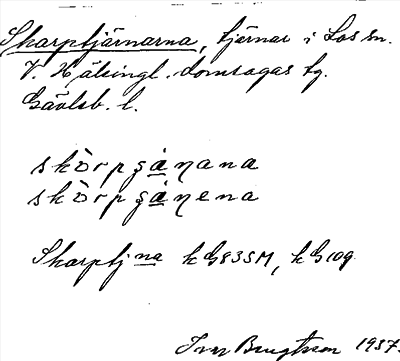 Skarptjärnarna, tjärnar i Los sn.
V. Hälsingl. domsagas tg.
Gävleb. l.
skòrpʂáɳana
skòrpʂáɳena
Skarptjna kG83SM, kG109
Ivar Bengtsson 1937.